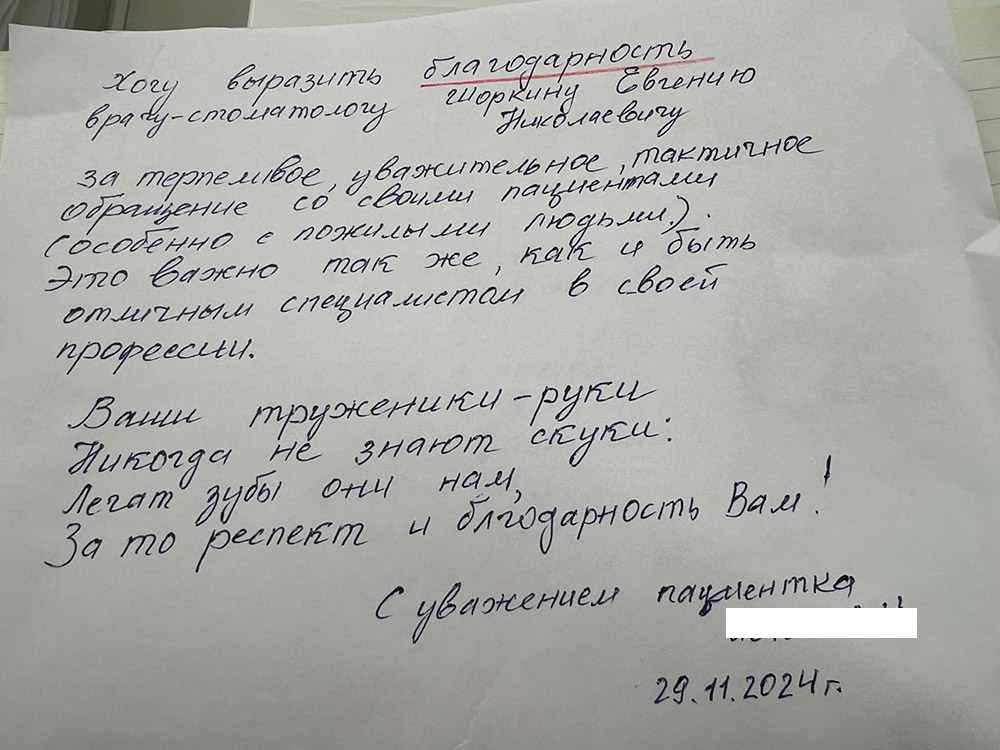 Хочу выразить благодарность
врачу-стоматологу Шоркину Евгению
Николаевичу
за терпеливое, уважительное, тактичное
обращение со своими пациентами
(особенно с пожилыми людьми.).
Это важно так же, как и быть
отличным специалистом в своей
профессии.
Ваши труженики-руки
Никогда не знают скуки:
Лечат зубы они нам,
За то респект и блгодарность Вам!
С уважением пациентка
29.11.2024г.